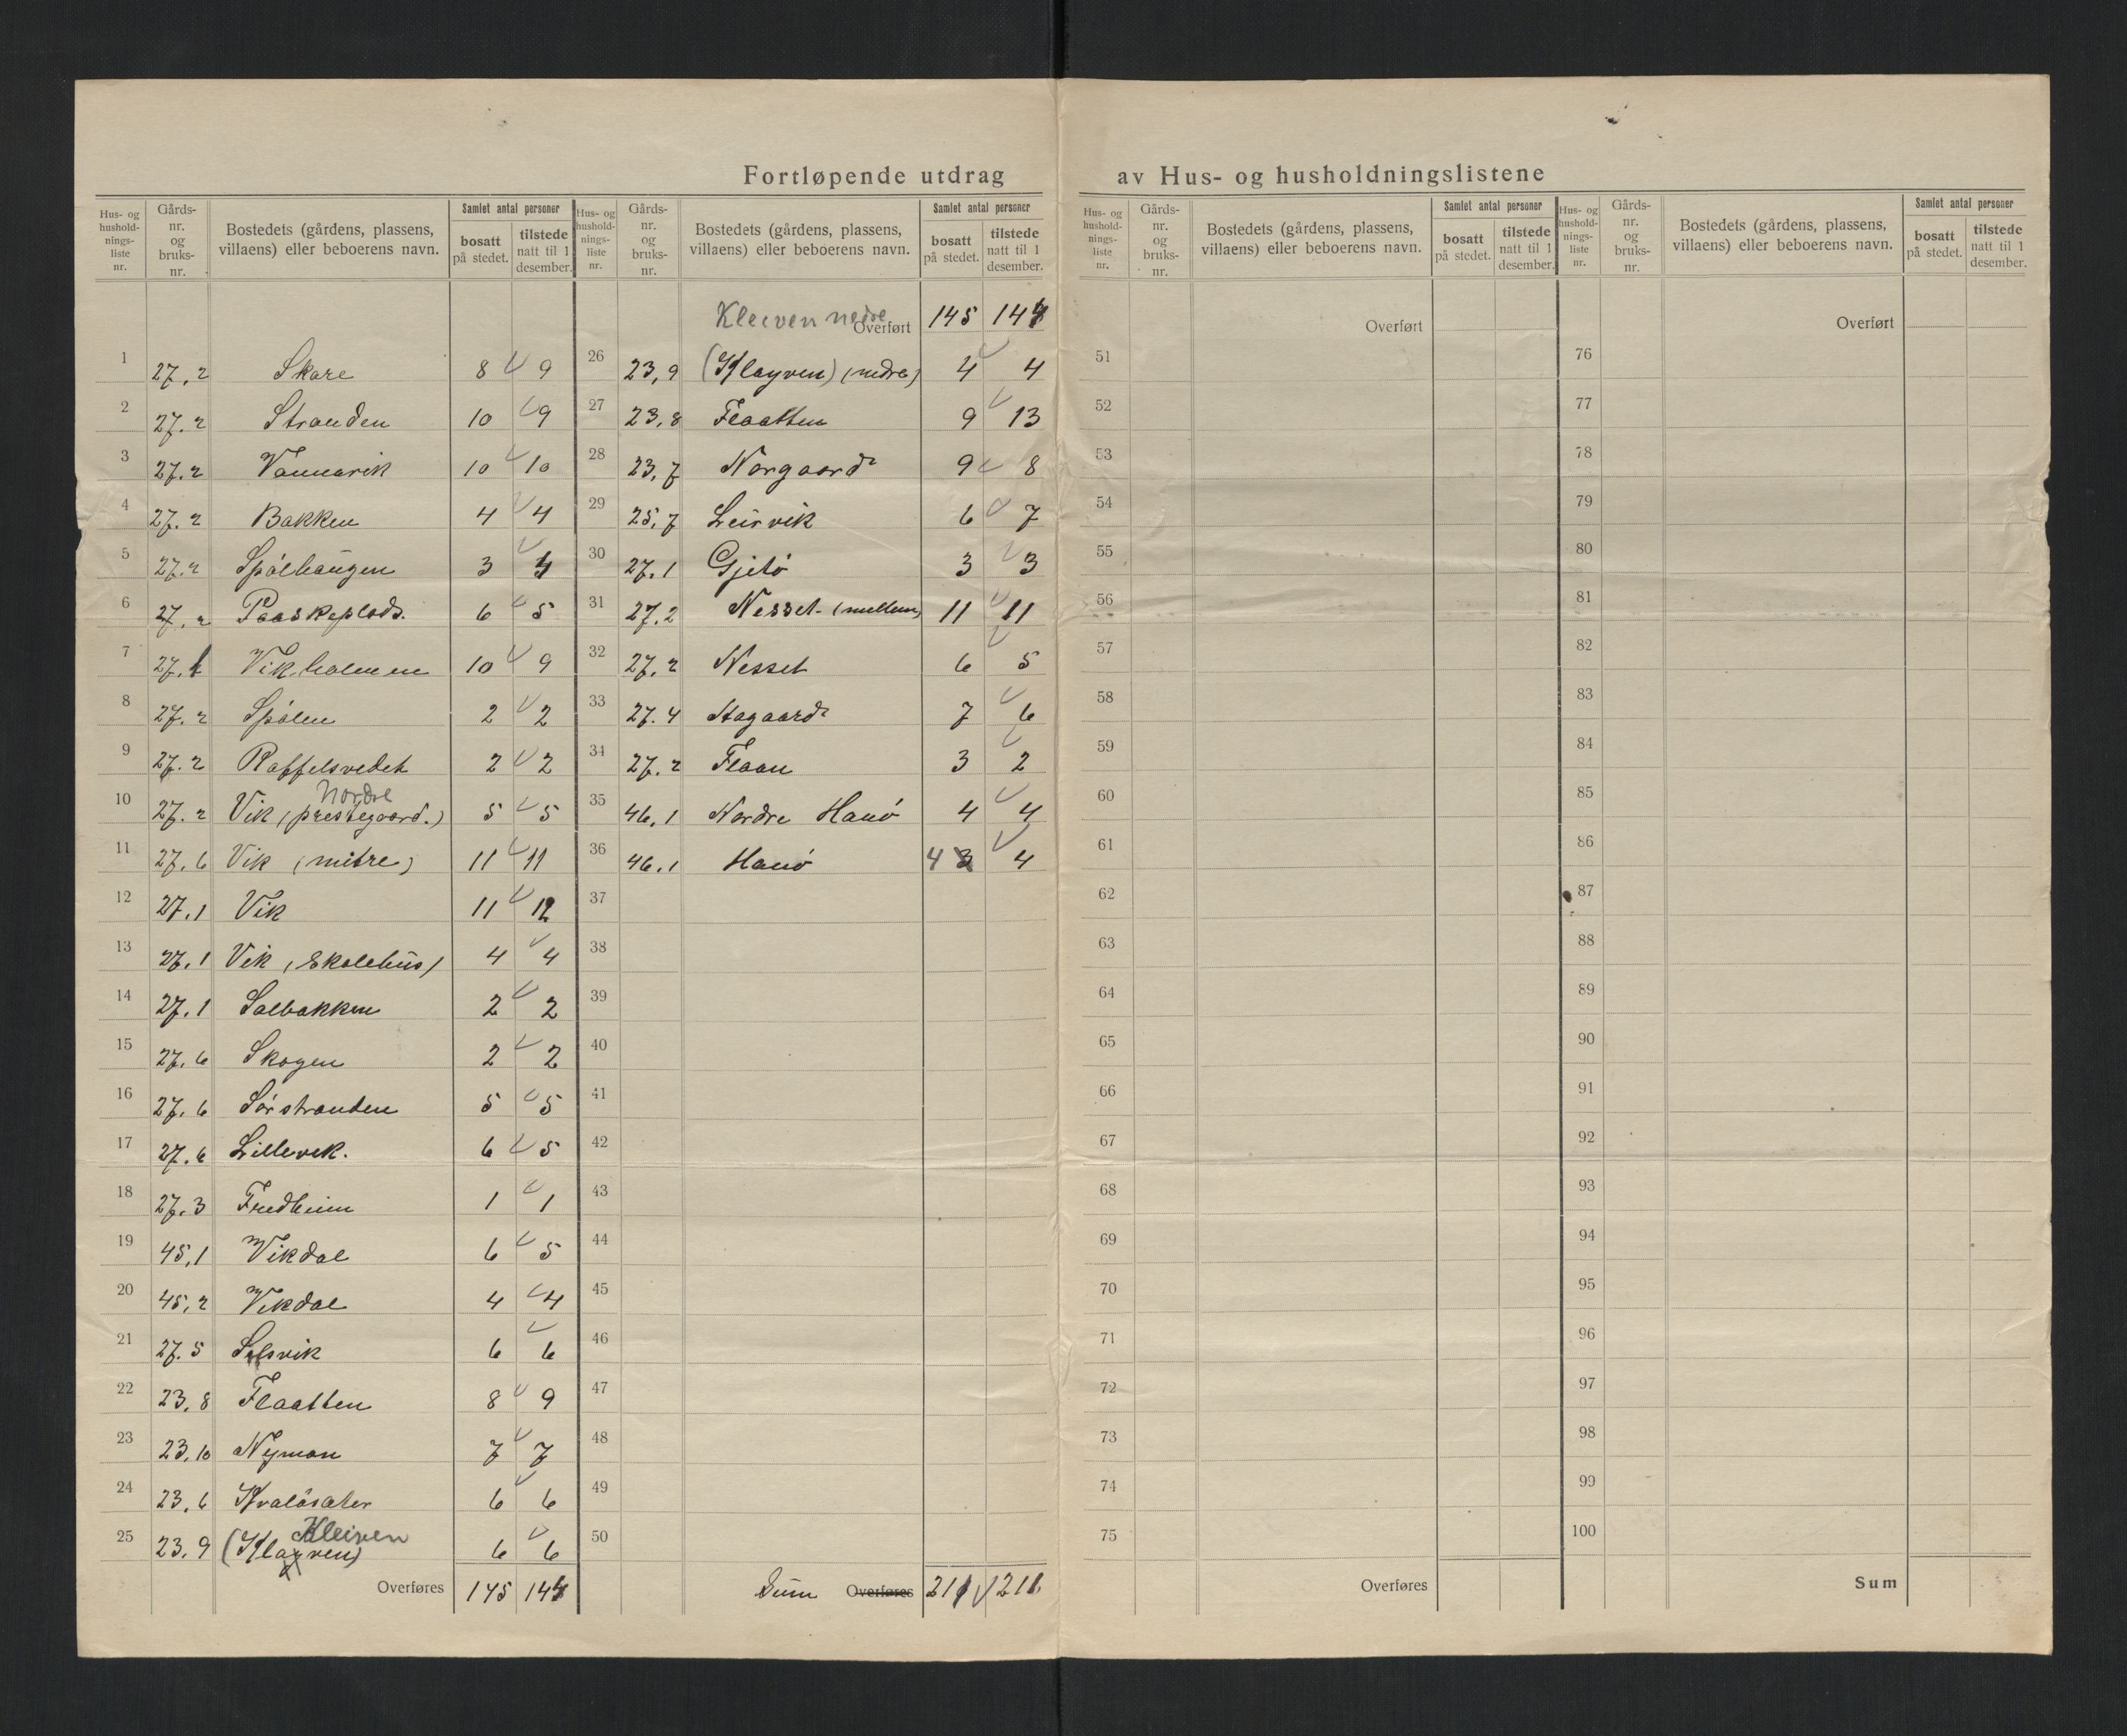 Fortløpende utdrag av Hus- og husholdningslistene
Hus- og hushold-nings-liste nr. Gårds-nr. og bruks-nr. Bostedets (gårdens, plassens, villaens) eller beboerens navn. Samlet antal personer bosatt på stedet. tilstede natt til 1 desember.
1 27,2 Skare 8 9
2 27.2 Stranden 10 9
3 27.2 Vannavik 10 10
4 27.2 Bakken 4 4
5 27.2 Spölhaugen 3 4
6 27.2 Paaskeplads. 6 5
7 27.1 Vikholmen 10 9
8 27.2 Spölen 2 2
9 27.2 Raffelsvedet 2 2
Nordre
10 27.2 Vik (prestegaard.) 5 5
11 27.6 Vik (mitre) 11 11
12 27.1 Vik 11 12
13 27.1 Vik (Skolehus) 4 4
14 27.1 Salbakken 2 2
15 27.6 Skogen 2 2
16 27.6 Sörstranden 5 5
17 27.6 Lillevik. 6 5
18 27.3 Fredheim 1 1
19 45,1 Vikdal 6 5
20 45,2 Vikdal 4 4
21 27.5 Selsvik 6 6
22 23,8 Flaatten 8 9
23 23,10 Nyman 7 7
24 23,6 Kvalösæter 6 6
Kleiven
25 23.9 (Klayven) 6 6
Overføres 145 144
Hus- og hushold-nings-liste nr. Gårds-nr. og bruks-nr. Bostedets (gårdens, plassens, villaens) eller beboerens navn. Samlet antal personer bosatt på stedet. tilstede natt til 1 desember.
Kleiven nedre
Overført 145 144
26 23,9 (Klayven) (nedre) 4 4
27 23,8 Flaatten 9 13
28 23,7 Norgaard 9 8
29 25,7 Leirvik 6 7
30 27.1 Gjetö 3 3
31 27.2 Nesset (mellem) 11 11
32 27.2 Nesset 6 5
33 27.4 Hagaard 7 6
34 27.2 Flaan 3 2
35 46,1 Nordre Hanö 4 4
36 46,1 Hanö 4 3 4
37
38
39
40
41
42
43
44
45
46
47
48
49
50
Sum Overføres 211 211
Hus- og hushold-nings-liste nr. Gårds-nr. og bruks-nr. Bostedets (gårdens, plassens, villaens) eller beboerens navn. Samlet antal personer bosatt på stedet. tilstede natt til 1 desember.
Overført
51
52
53
54
55
56
57
58
59
60
61
62
63
64
65
66
67
68
69
70
71
72
73
74
75
Overføres
Hus- og hushold-nings-liste nr. Gårds-nr. og bruks-nr. Bostedets (gårdens, plassens, villaens) eller beboerens navn. Samlet antal personer bosatt på stedet. tilstede natt til 1 desember.
Overført
76
77
78
79
80
81
82
83
84
85
86
87
88
89
90
91
92
93
94
95
96
97
98
99
100
Sum